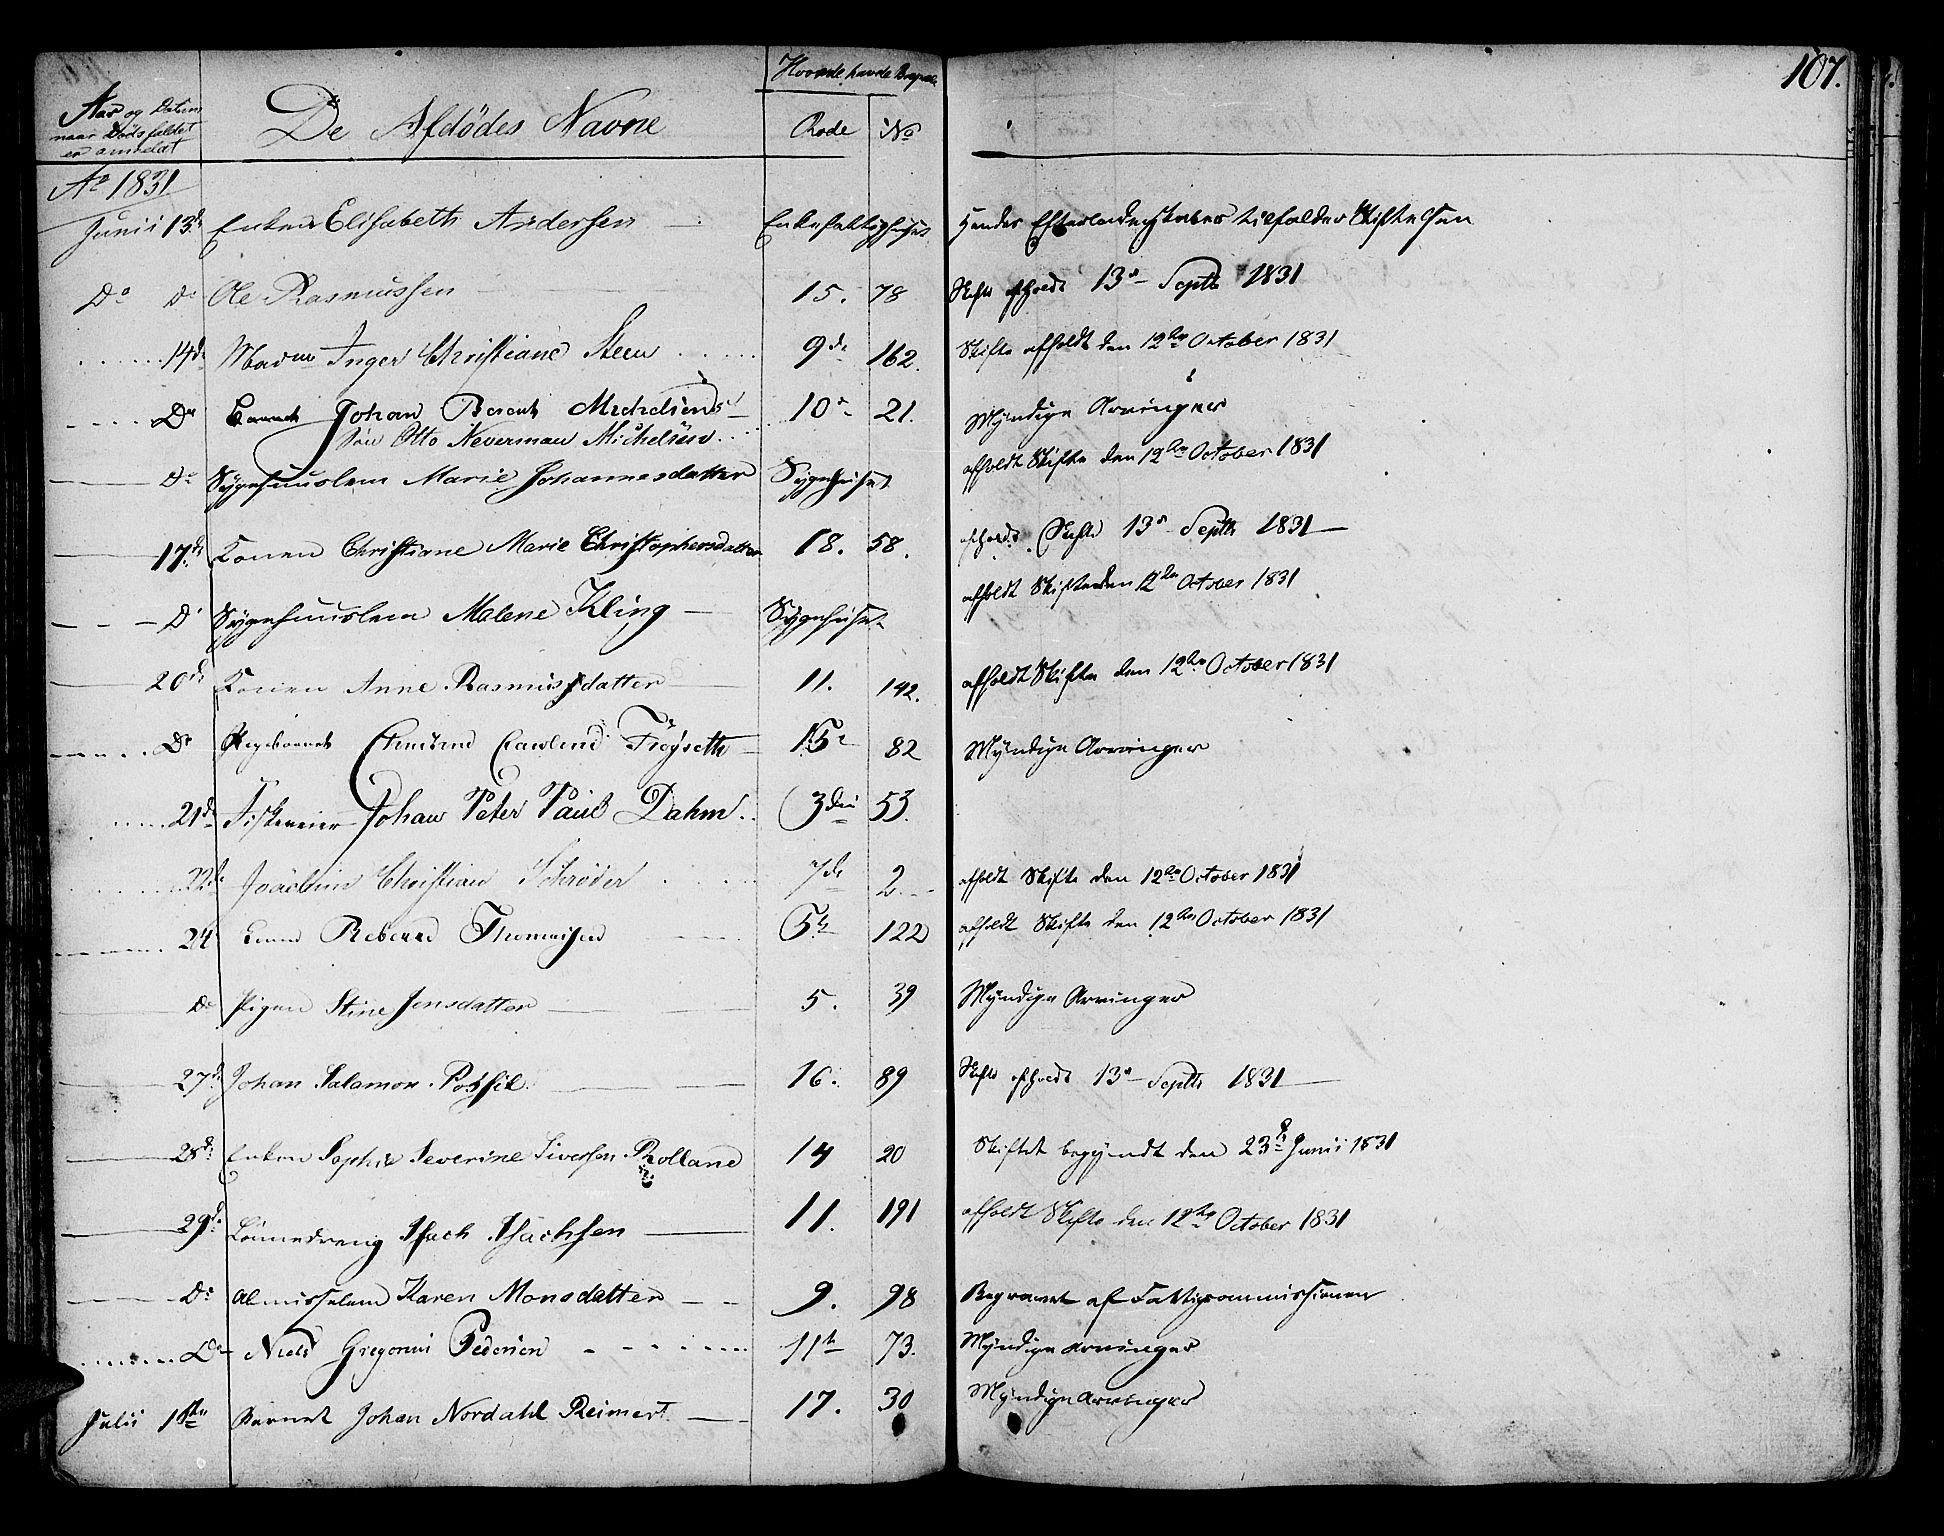 107.
Aar og Datum naar Dödsfaldet er anmeldt
De Afdödes Navne
Hvor de havde Bopæl
Rode No
Ao 1831
Junii 13de Enken Elisabeth Andersen — Enkefattighuset Hendes Efterladenskaber tilfalder Stiftelsen
Do Do Ole Rasmussen — 15. 78 Skifte afholdt 13de Septbr 1831
14de Madme Inger Christiane Steen 9de 162. Skifte afholdt den 12te October 1831
Do Barnet Johan Berent Michelsen 10de 21. Myndige Arvinger
Sön Otto Neverman Michelsen
Do Sygehuuslem Marie Johannesdatter Sygehuset afholdt Skifte den 12te October 1831
17de Konen Christiane Marie Christophersdatter 18. 58. afholdt Skifte 13de Septbr 1831 —
Do Sygehuuslem Malene Kling — Sygehuset afholdt Skifte den 12te October 1831
20de Konen Anne Rasmusdatter — 11. 142. afholdt Skifte den 12te October 1831
Do Pigebarnet Fröyseth — 15de 82 Myndige Arvinger
21de Johan Peter Paul Dahm 3die 53.
22de Joachim Christian Schröder 7de 2 afholdt Skifte den 12te October 1831
24 Thomasen 5te 122 afholdt Skifte den 12te October 1831
Do Pigen Stine Jensdatter — 5. 39 Myndige Arvinger
27de Johan Salamon Possel — 16. 89 Skifte afholdt 13de Septbr 1831 —
28de Enken Sophie Severine Siversen Rolland 14 20 Skiftet begyndt den 23de Junii 1831
29de Isach Isachsen — 11. 191 afholdt Skifte den 12te October 1831
Do Almisselem Karen Monsdatter — 9. 98 Begravet af Fattigcommissionen
Do Niels Gregorius Pedersen 11te 73. Myndige Arvinger
Julii 1ste Barnet Johan Nordahl Reimert — 17. 30 Myndige Arvinger